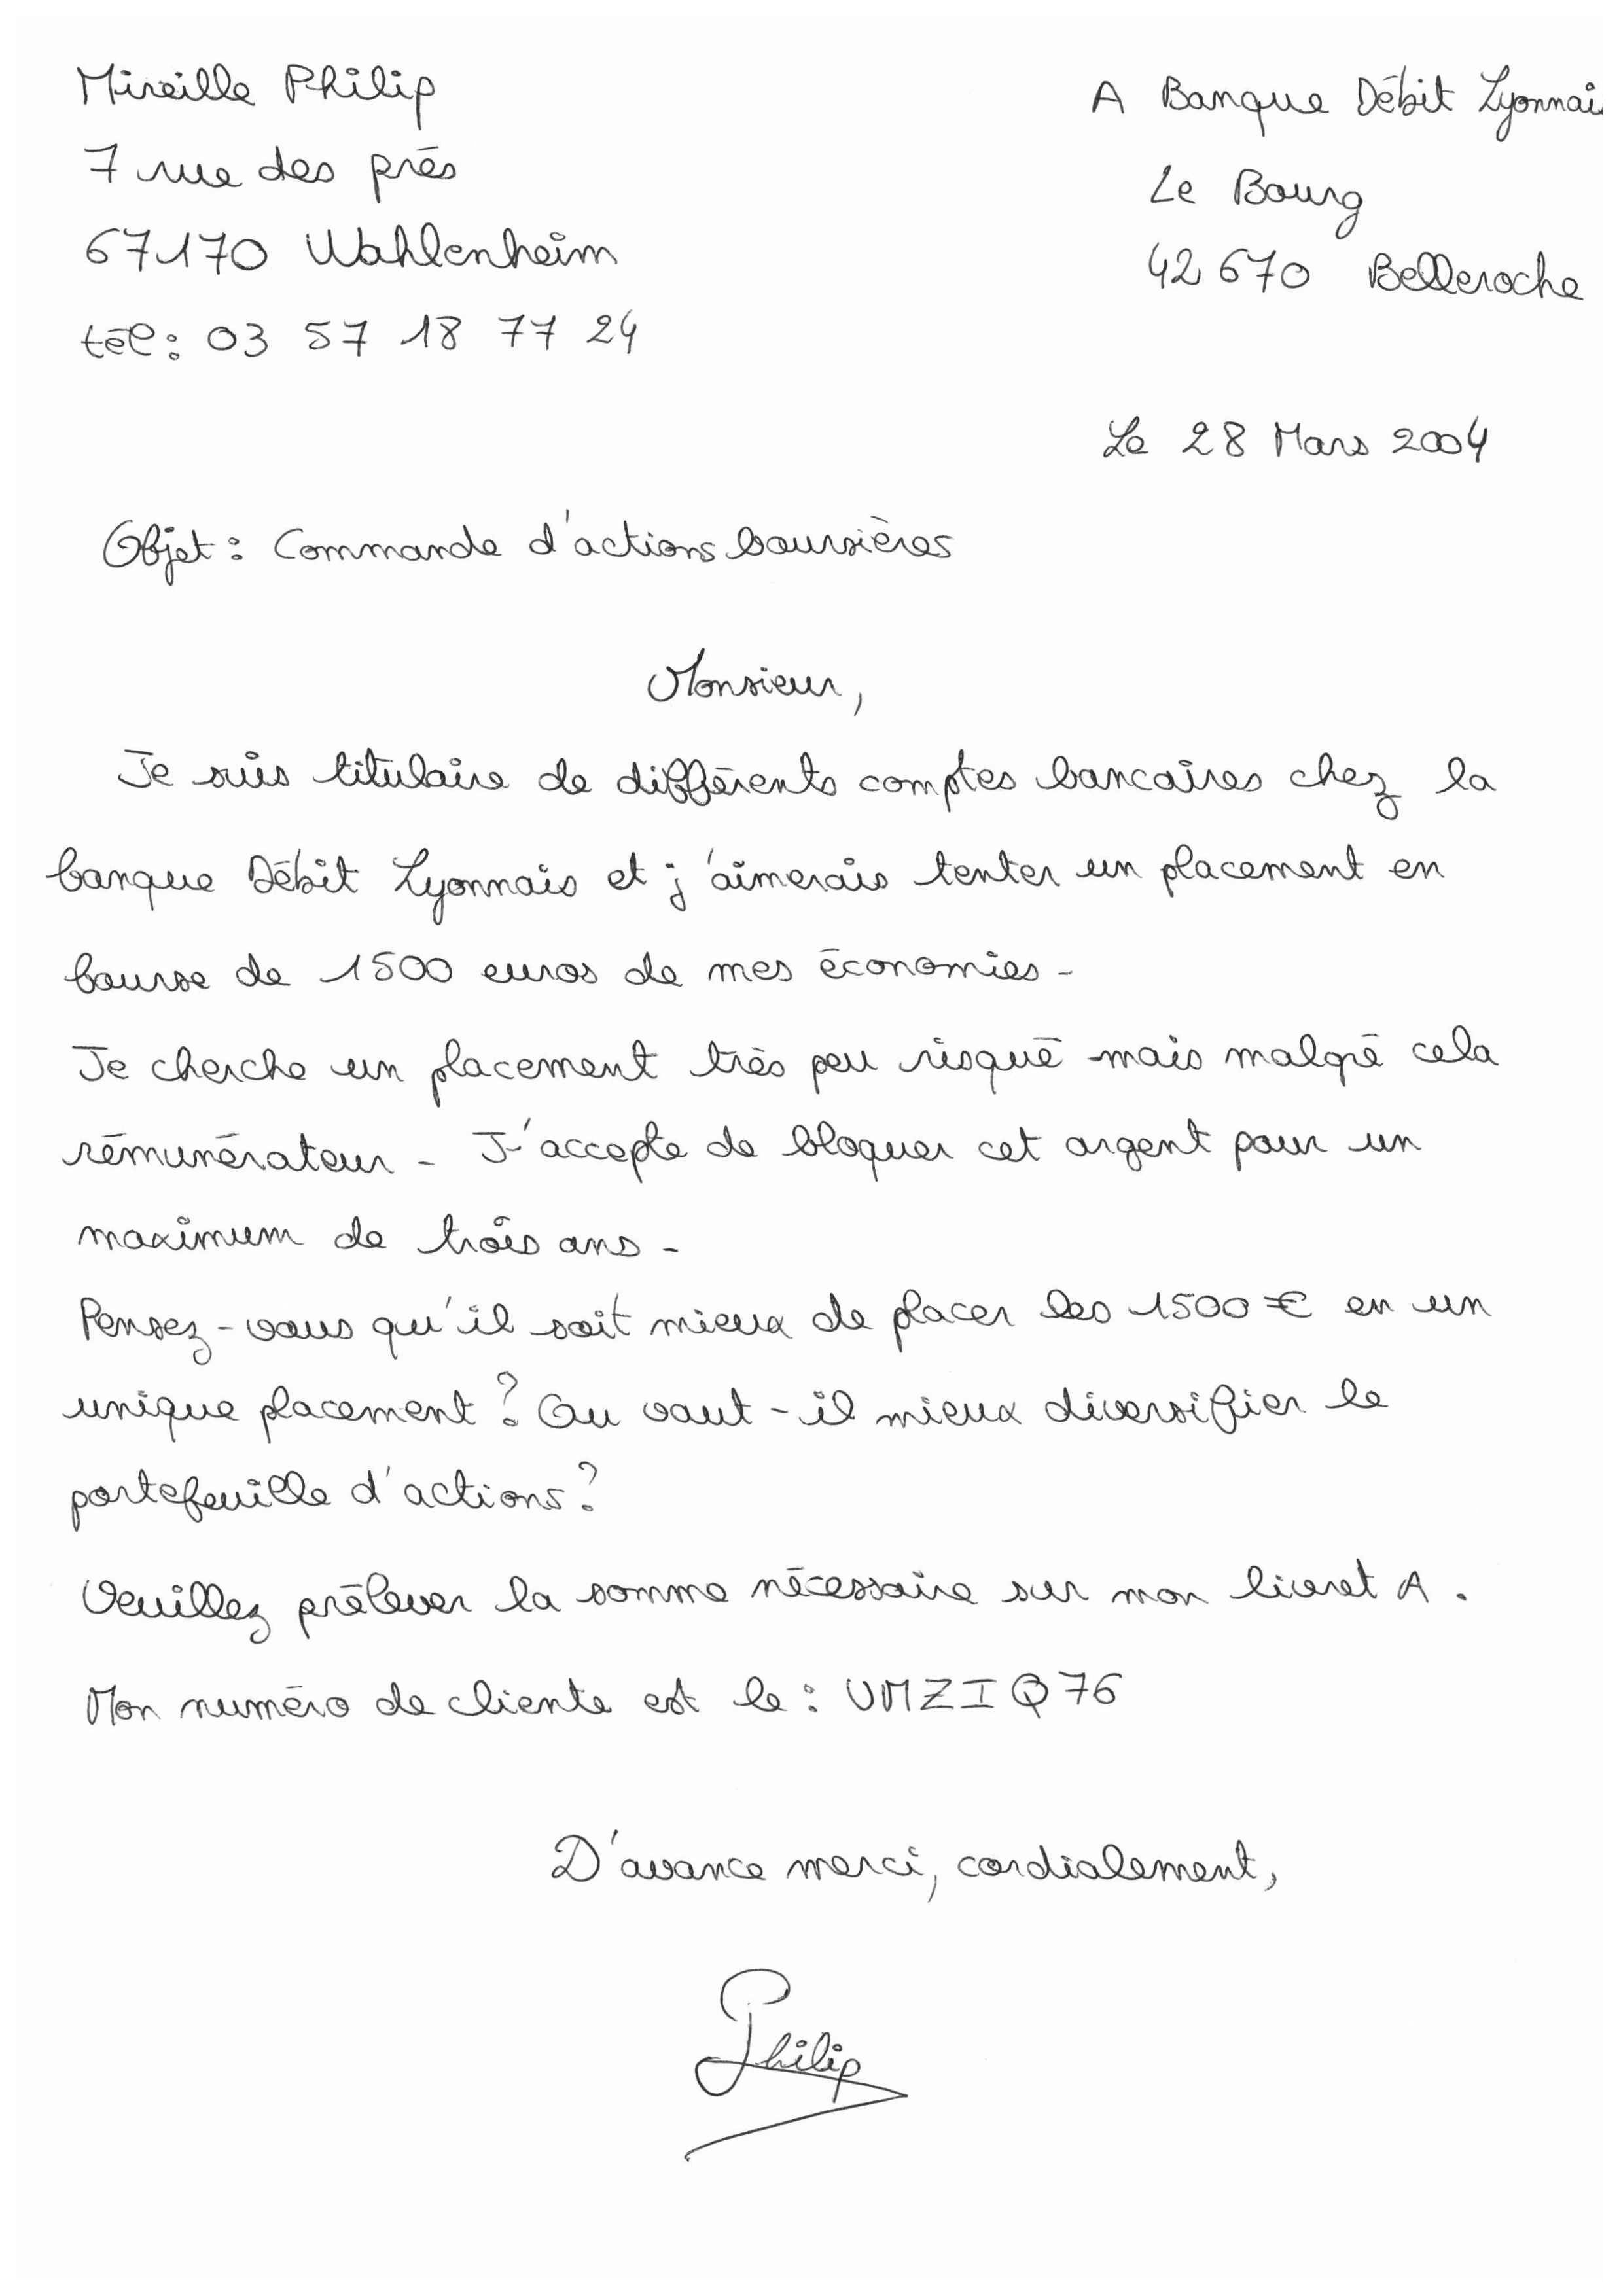 Mireille Philip
7 rue des prés
67170 Wahlenheim
tél : 03 57 18 77 24
A Banque Débit Lyonnai
Le Bourg
42 670 Belleroche
Le 28 Mars 2004
Objet : Commande d'actions boursières
Monsieur,
Je suis titulaire de différents comptes bancaires chez la
banque Débit Lyonnais et j'aimerais tenter un placement en
bourse de 1500 euros de mes économies -
Je cherche un placement très peu risqué mais malgré cela
rémunérateur - J'accepte de bloquer cet argent pour un
maximum de trois ans -
Pensez-vous qu'il soit mieux de placer les 1500 € en un
unique placement ? Ou vaut-il mieux diversifier le
portefeuille d'actions ?
Veuillez prélever la somme nécessaire sur mon livret A .
Mon numéro de cliente est le : UMZIQ76
D'avance merci, cordialement,
Philip